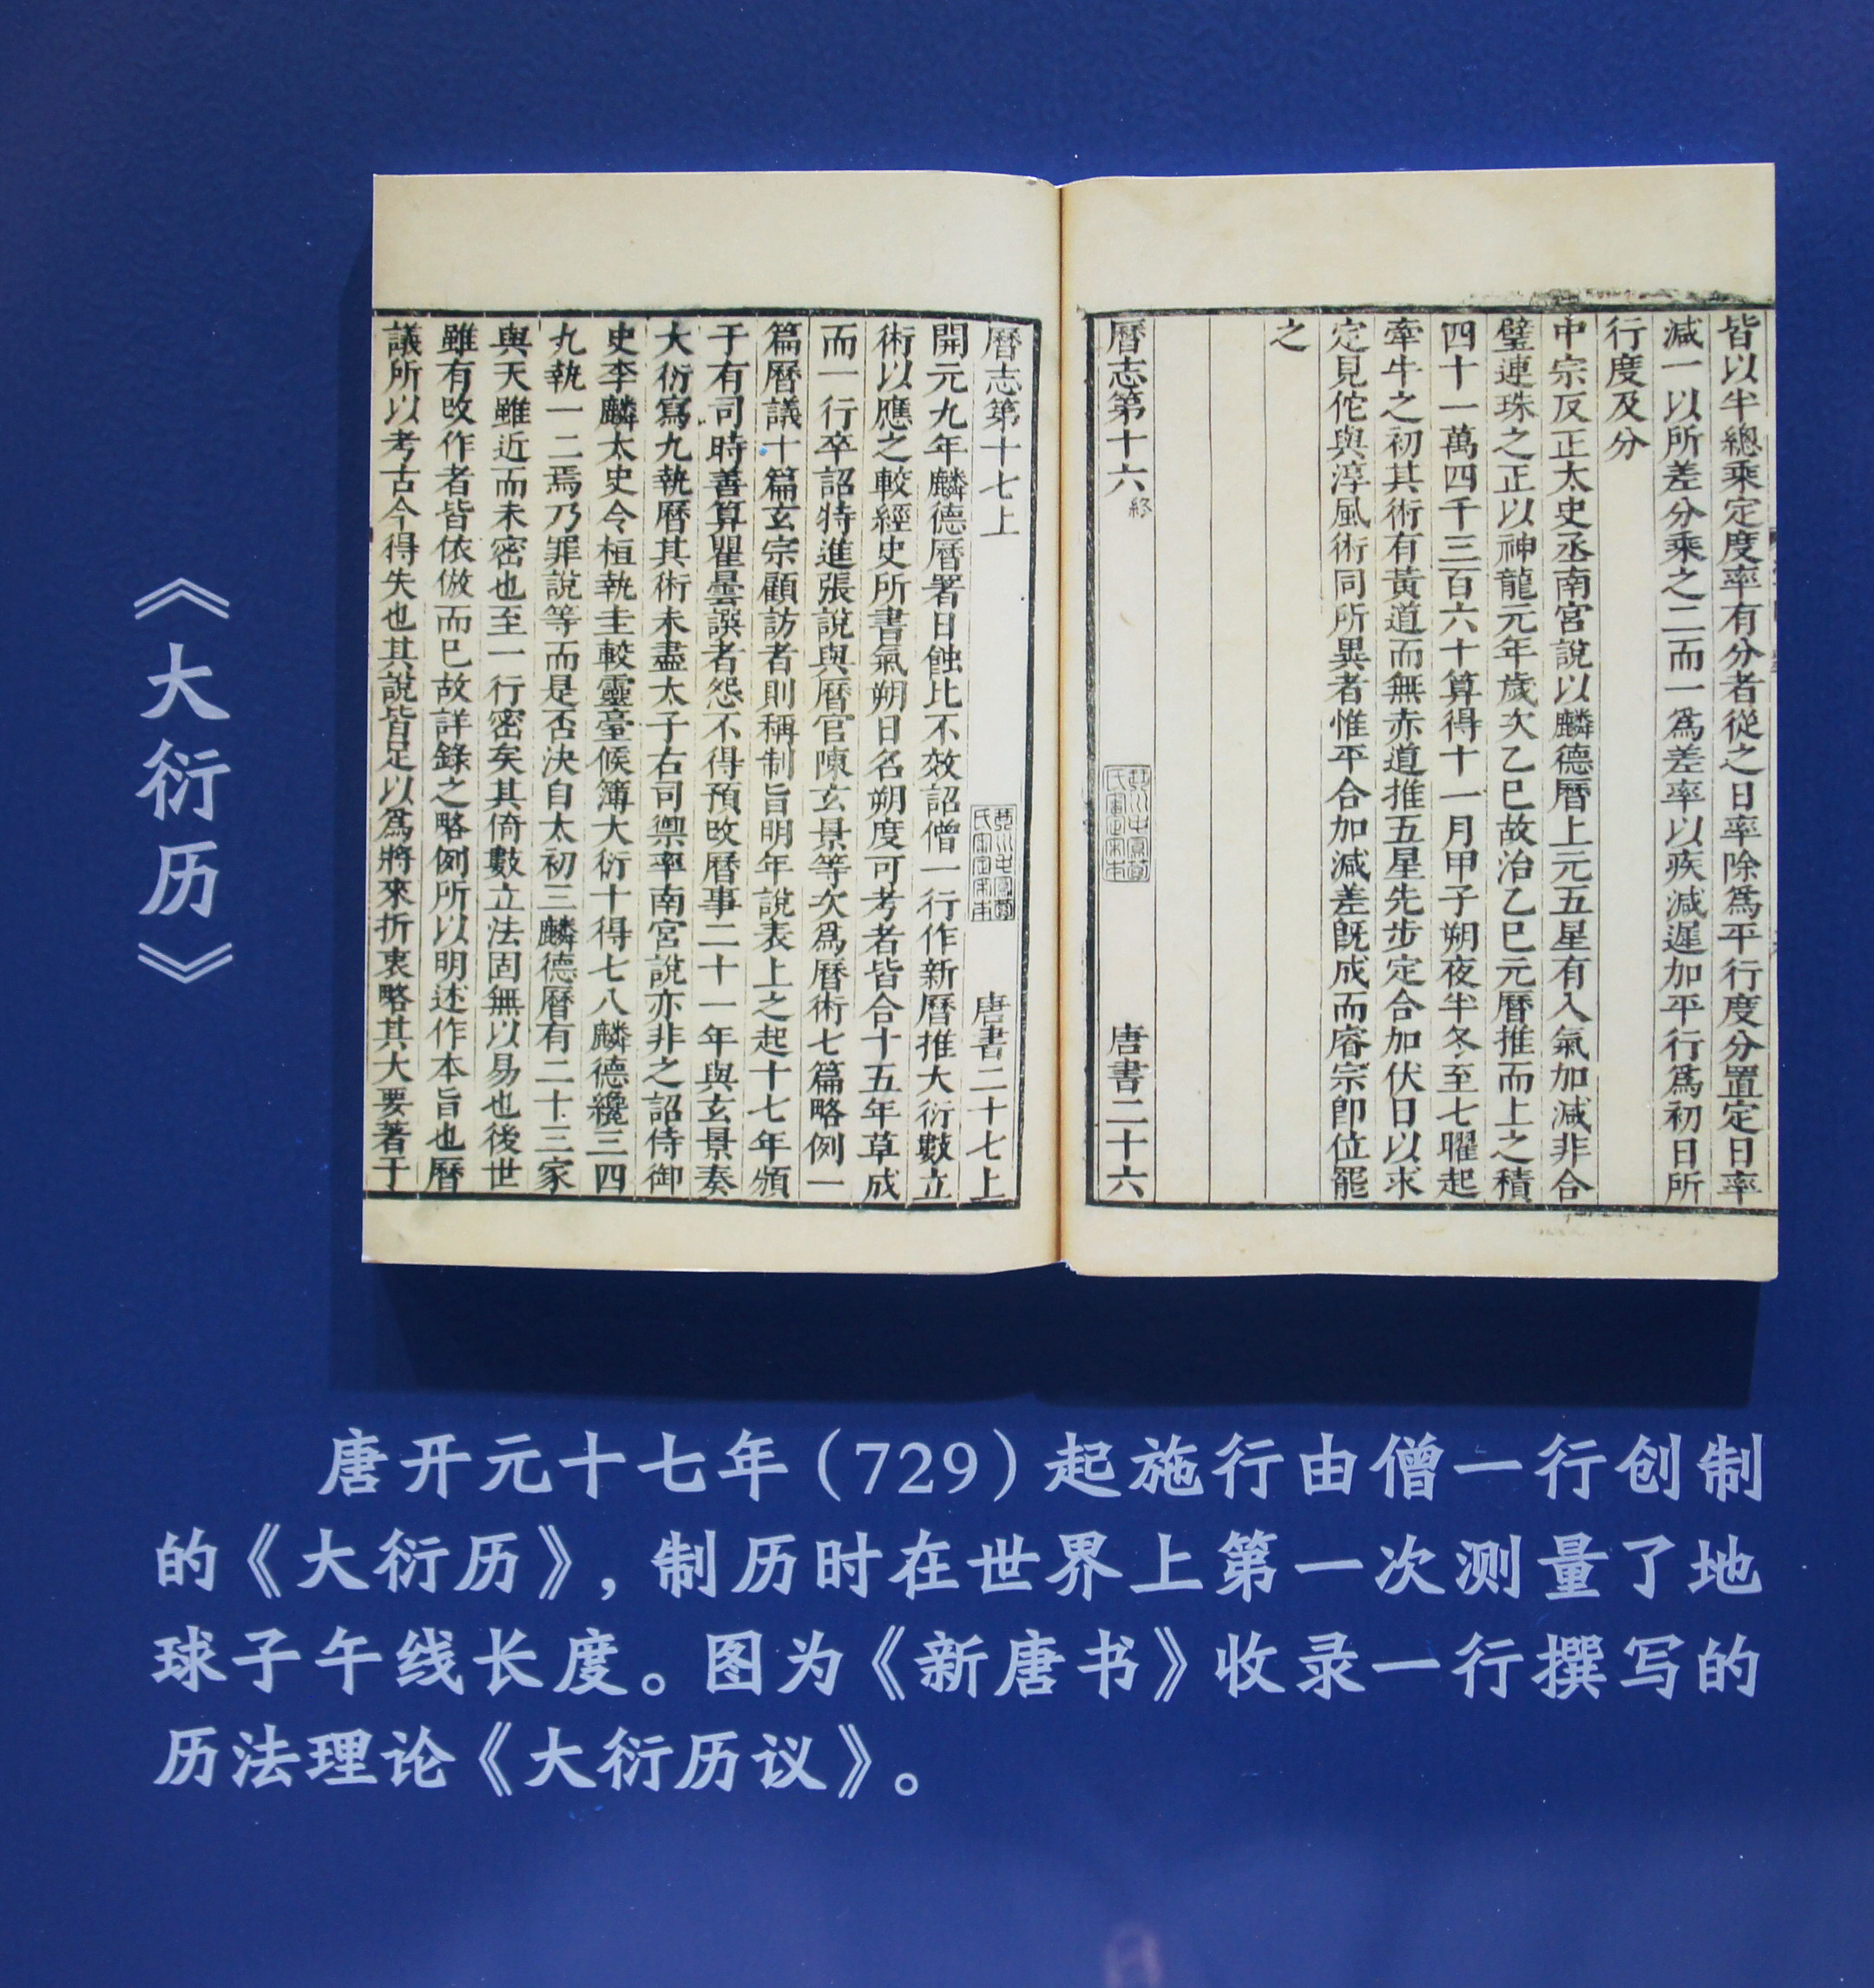 《大衍历》
皆以半總乘定度率有分者從之日率除爲平行度分置定日率
減一以所差分乘之二而一爲差率以疾減遲加平行爲初日所
行度及分
中宗反正太史丞南宮說以麟德曆上元五星有入氣加減非合
璧連珠之正以神龍元年歲次乙巳故治乙巳元曆推而上之積
四十一萬四千三百六十算得十一月甲子朔夜半冬至七曜起
牽牛之初其術有黃道而無赤道推五星先步定合加伏日以求
定見佗與淳風術同所異者惟平合加減差旣成而睿宗卽位罷
之
曆志第十六 終 唐書二十六
曆志第十七上 唐書二十七上
開元九年麟德曆署日蝕比不效詔僧一行作新曆推大衍數立
術以應之較經史所書氣朔日名朔度可考者皆合十五年草成
而一行卒詔特進張說與曆官陳玄景等次爲曆術七篇略例一
篇曆議十篇玄宗顧訪者則稱制旨明年說表上之起十七年頒
于有司時善算瞿曇譔者怨不得預改曆事二十一年與玄景奏
大衍寫九執曆其術未盡太子右司禦率南宮說亦非之詔侍御
史李麟太史令桓執圭較靈臺候簿大衍十得七八麟德纔三四
九執一二焉乃罪說等而是否決自太初三麟德曆有二十三家
與天雖近而未密也至一行密矣其倚數立法固無以易也後世
雖有改作者皆依倣而已故詳錄之略例所以明述作本旨也曆
議所以考古今得失也其說皆足以爲將來折衷略其大要著于
唐开元十七年（729）起施行由僧一行创制
的《大衍历》，制历时在世界上第一次测量了地
球子午线长度。图为《新唐书》收录一行撰写的
历法理论《大衍历议》。